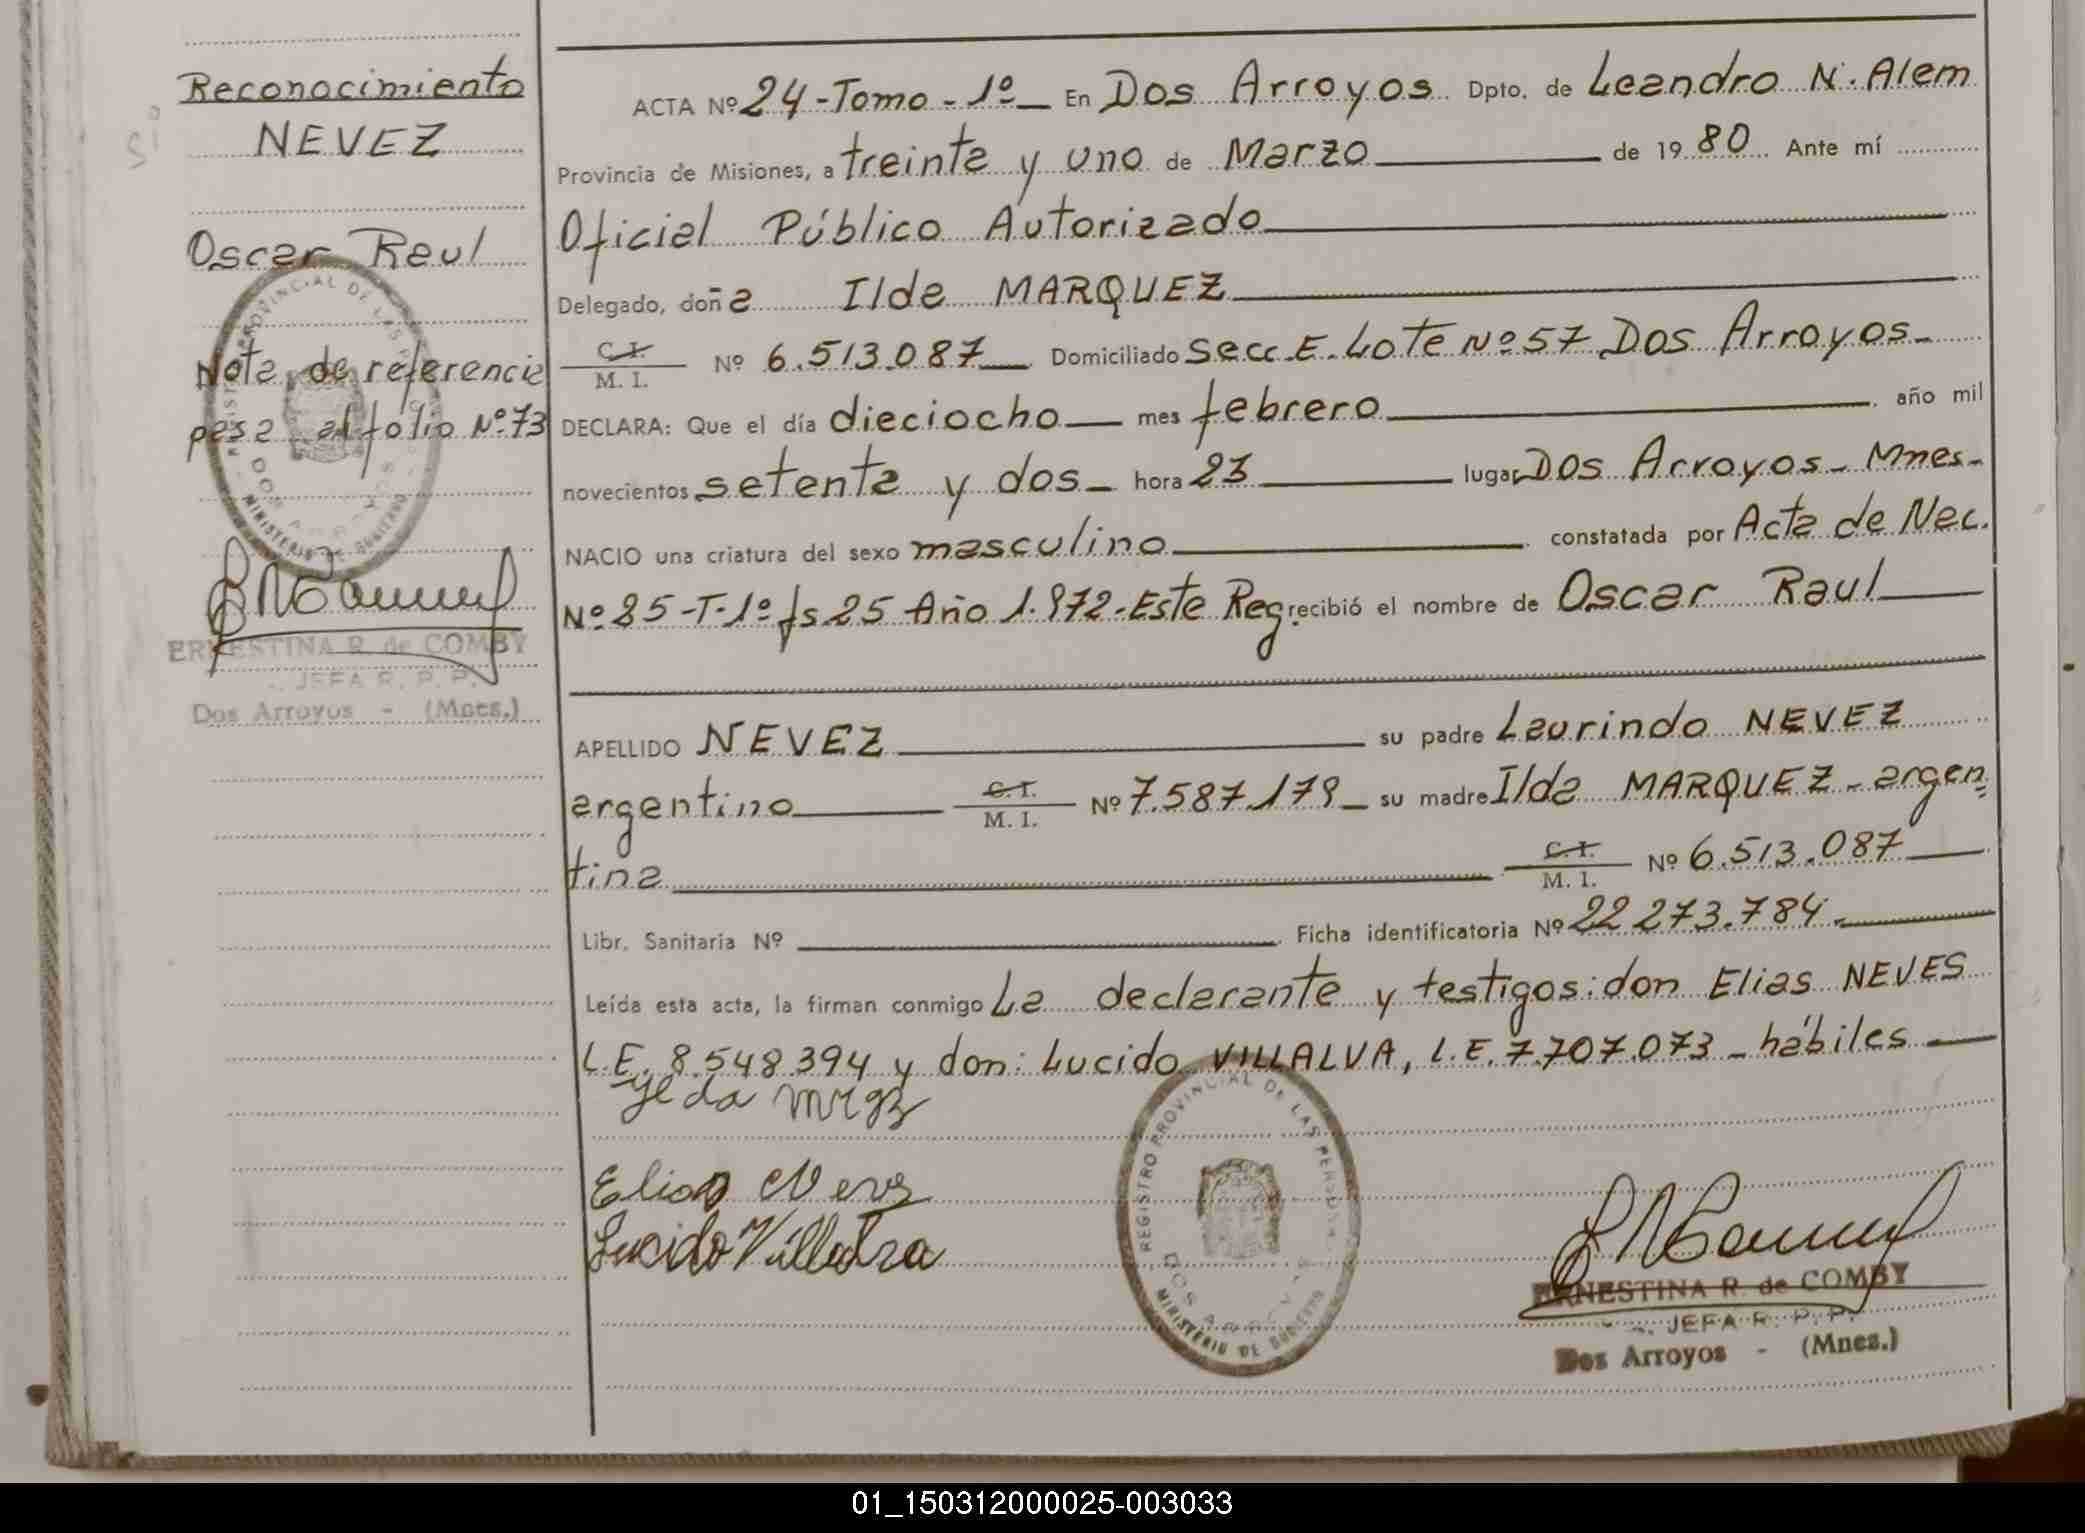 Reconocimiento
NEVEZ
Oscar Raul
Nota de referencia
pasa al folio Nº 73
ERNESTINA R. de COMBY
JEFA R. P. P.
Dos Arroyos - (Mnes.)
ACTA Nº 24 - Tomo - 1º — En Dos Arroyos Dpto. de Leandro N. Alem
Provincia de Misiones, a treinta y uno de Marzo — de 1980 Ante mí
Oficial Público Autorizado —
Delegado, doña Ilda MARQUEZ —
C.I. / M. I. Nº 6.513.087 — Domiciliado Secc. E. Lote Nº 57 Dos Arroyos -
DECLARA: Que el día dieciocho — mes febrero — año mil
novecientos setenta y dos - hora 23 — lugar Dos Arroyos - Mnes -
NACIO una criatura del sexo masculino — constatada por Acta de Nac.
Nº 25 - T - 1º fs 25 Año 1.972 - Este Reg. recibió el nombre de Oscar Raul —
APELLIDO NEVEZ — su padre Laurindo NEVEZ
argentino — C.I. / M. I. Nº 7.587.179 - su madre Ilda MARQUEZ - argen=
tina — C.I. / M. I. Nº 6.513.087 —
Libr. Sanitaria Nº — Ficha identificatoria Nº 22 273.784. —
Leída esta acta, la firman conmigo La declarante y testigos: don Elias NEVES
L.E. 8.548.394 y don: Lucido VILLALVA, L.E. 7.707.073 - hábiles —
Elias Neves
Lucido Villalva
REGISTRO PROVINCIAL DE LAS PERSONAS
DOS ARROYOS
MINISTERIO DE GOBIERNO
ERNESTINA R. de COMBY
JEFA R. P. P.
Dos Arroyos - (Mnes.)
01_150312000025-003033